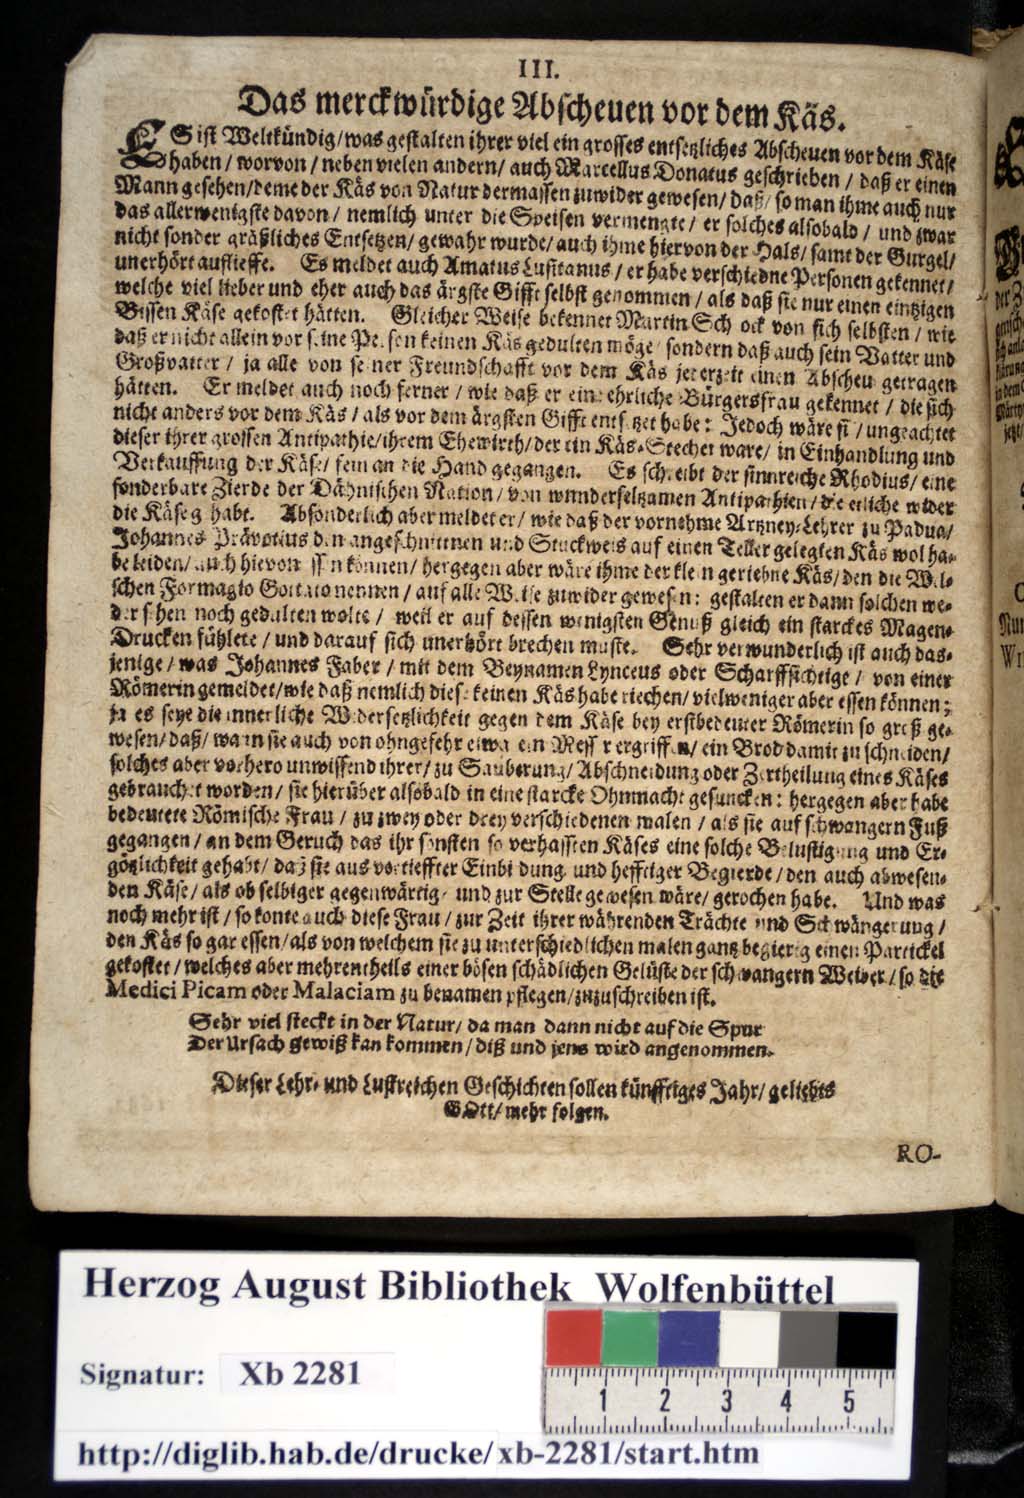 III.
Das merckwürdige Abscheuen vor dem Käs.
ES ist Weltkündig/was gestalten ihrer viel ein grosses entsetzliches Abscheuen vor dem Käse
haben/ worvon/ neben vielen andern/ auch Marcellus Donatus geschrieben/ daß er einen
Mann gesehen/deme der Käs von Natur dermassen zuwider gewesen/ daß/ so man ihme auch nur
das allerwenigste davon/ nemlich unter die Speisen vermengte/ er solches alsobald/ und zwar
nicht sonder gräßliches Entsetzen/ gewahr wurde/ auch ihme hiervon der Hals/ samt der Gurgel/
unerhört aufliesse. Es meldet auch Amatus Lusitanus/ er habe verschiedne Personen gekennet/
welche viel lieber und eher auch das ärgste Gifft selbst genommen/ als daß sie nur einen eintzigen
Bissen Käse gekostet hätten. Gleicher Weise bekennet Martin Schock von sich selbsten/ wie
daß er nicht allein vor seine Person keinen Käs gedulten möge/ sondern daß auch sein Vatter und
Großvatter/ ja alle von seiner Freundschafft vor dem Käs jederzeit einen Abscheu getragen
hätten. Er meldet auch noch ferner/ wie daß er eine ehrliche Bürgersfrau gekennet/ die sich
nicht anders vor dem Käs/ als vor dem ärgsten Gifft entsetzet habe: Jedoch wäre sie/ ungeachtet
dieser ihrer grossen Antipathie/ihrem Ehewirth/der ein Käs-Stecher ware/ in Einhandlung und
Verkauffung der Käse/ fein an die Hand gegangen. Es schreibt der sinnreiche Rhodius/ eine
sonderbare Zierde der Dähnischen Nation/ von wunderseltzamen Antipathien/ die etliche wider
die Käse gehabt. Absonderlich aber meldet er/ wie daß der vornehme Artzney-Lehrer zu Padua/
Johannes Prävotius den angeschnittnen und Stuckweis auf einen Teller gelegten Käs wol ha-
be leiden/ auch hievon essen können/ hergegen aber wäre ihme der klein geriebne Käs/ den die Wel-
schen Formagio Gottato nennen/ auf alle Weise zuwider gewesen: gestalten er dann solchen we-
der sehen noch gedulten wolte/ weil er auf dessen wenigsten Genuß gleich ein starckes Magen-
Drucken fühlete/ und darauf sich unerhört brechen muste. Sehr verwunderlich ist auch das-
jenige/ was Johannes Faber/ mit dem Beynamen Lynceus oder Scharffsichtige/ von einer
Römerin gemeldet/wie daß nemlich diese keinen Käs habe riechen/ vielweniger aber essen können;
ja es seye die innerliche Widersetzlichkeit gegen dem Käse bey erstbedeuter Römerin so groß ge-
wesen/ daß/ wann sie auch von ohngefehr etwa ein Messer ergriffen/ ein Brod damit zu schneiden/
solches aber vorhero unwissend ihrer/ zu Sauberung/ Abschneidung oder Zertheilung eines Käses
gebrauchet worden/ sie hierüber alsobald in eine starcke Ohnmacht gesuncken: hergegen aber habe
bedeutete Römische Frau/ zu zwey oder drey verschiedenen malen/ als sie auf schwangern Fuß
gegangen/ an dem Geruch das ihr sonsten so verhassten Käses eine solche Belustigung und Er-
götzlichkeit gehabt/ daß sie aus vertieffter Einbildung und hefftiger Begierde/ den auch abwesen-
den Käse/ als ob selbiger gegenwärtig und zur Stelle gewesen wäre/ gerochen habe. Und was
noch mehr ist/ so konte auch diese Frau/ zur Zeit ihrer währenden Trächte und Schwängerung/
den Käs so gar essen/als von welchem sie zu unterschiedlichen malen gantz begierig einen Partickel
gekostet/ welches aber mehrentheils einer bösen schädlichen Gelüste der schwangern Weiber/ so die
Medici Picam oder Malaciam zu benamen pflegen/zuzuschreiben ist.
Sehr viel steckt in der Natur/ da man dann nicht auf die Spur
Der Ursach gewiß kan kommen/ diß und jens wird angenommen.
Dieser Lehr- und Lustreichen Geschichten sollen künfftiges Jahr/ geliebts
GOtt/ mehr folgen.
RO-
Herzog August Bibliothek Wolfenbüttel
Signatur: Xb 2281
1 2 3 4 5
http://diglib.hab.de/drucke/xb-2281/start.htm